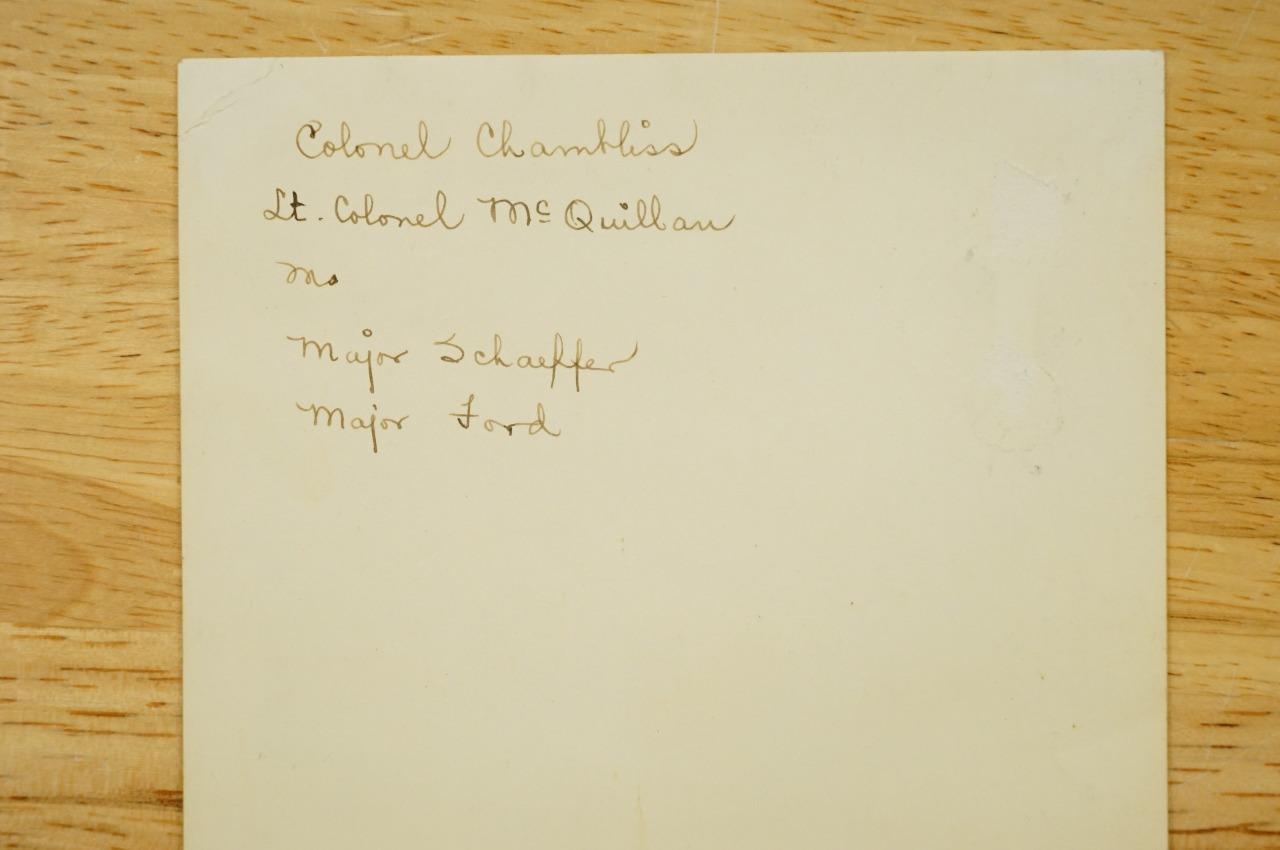 Colonel Chambliss
Lt. Colonel McQuillan
Ma
Major Schaeffer
Major Ford